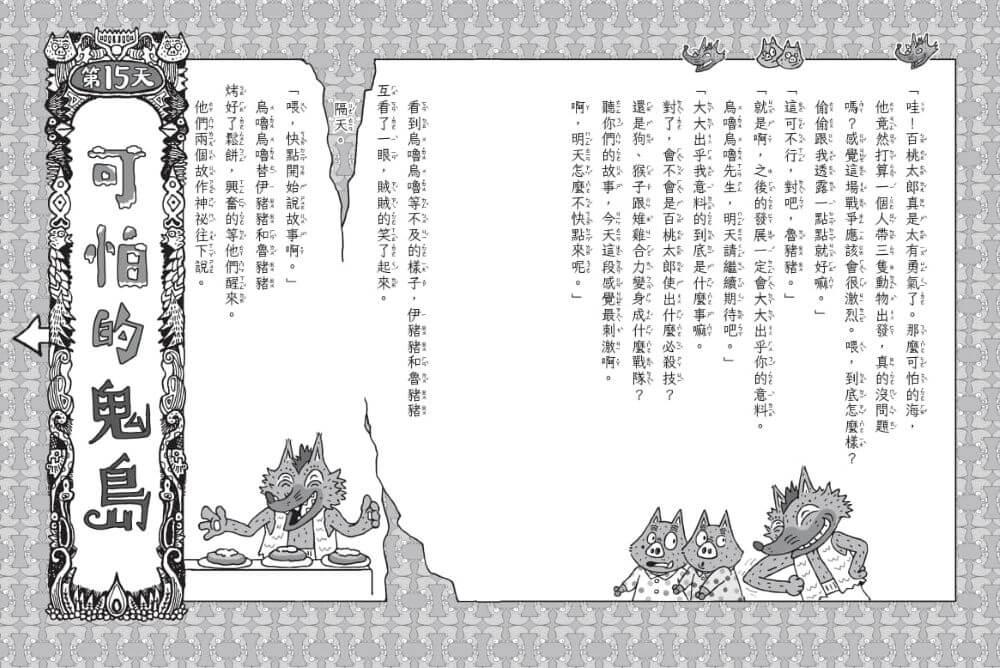 「哇！百桃太郎真是太有勇氣了。那麼可怕的海，
他竟然打算一個人帶三隻動物出發，真的沒問題
嗎？感覺這場戰爭應該會很激烈。喂，到底怎麼樣？
偷偷跟我透露一點點就好嘛。」
「這可不行，對吧，魯豬豬。」
「就是啊，之後的發展一定會大大出乎你的意料。
烏嚕烏嚕先生，明天請繼續期待吧。」
「大大出乎我意料的到底是什麼事嘛。
對了，會不會是百桃太郎使出什麼必殺技？
還是狗、猴子跟雉雞合力變身成什麼戰隊？
聽你們的故事，今天這段感覺最刺激啊。
啊，明天怎麼不快點來呢。」
看到烏嚕烏嚕等不及的樣子，伊豬豬和魯豬豬
互看了一眼，賊賊的笑了起來。
隔天。
「喂，快點開始說故事啊。」
烏嚕烏嚕替伊豬豬和魯豬豬
烤好了鬆餅，興奮的等他們醒來。
他們兩個故作神祕往下說。
第15天
可怕的鬼島